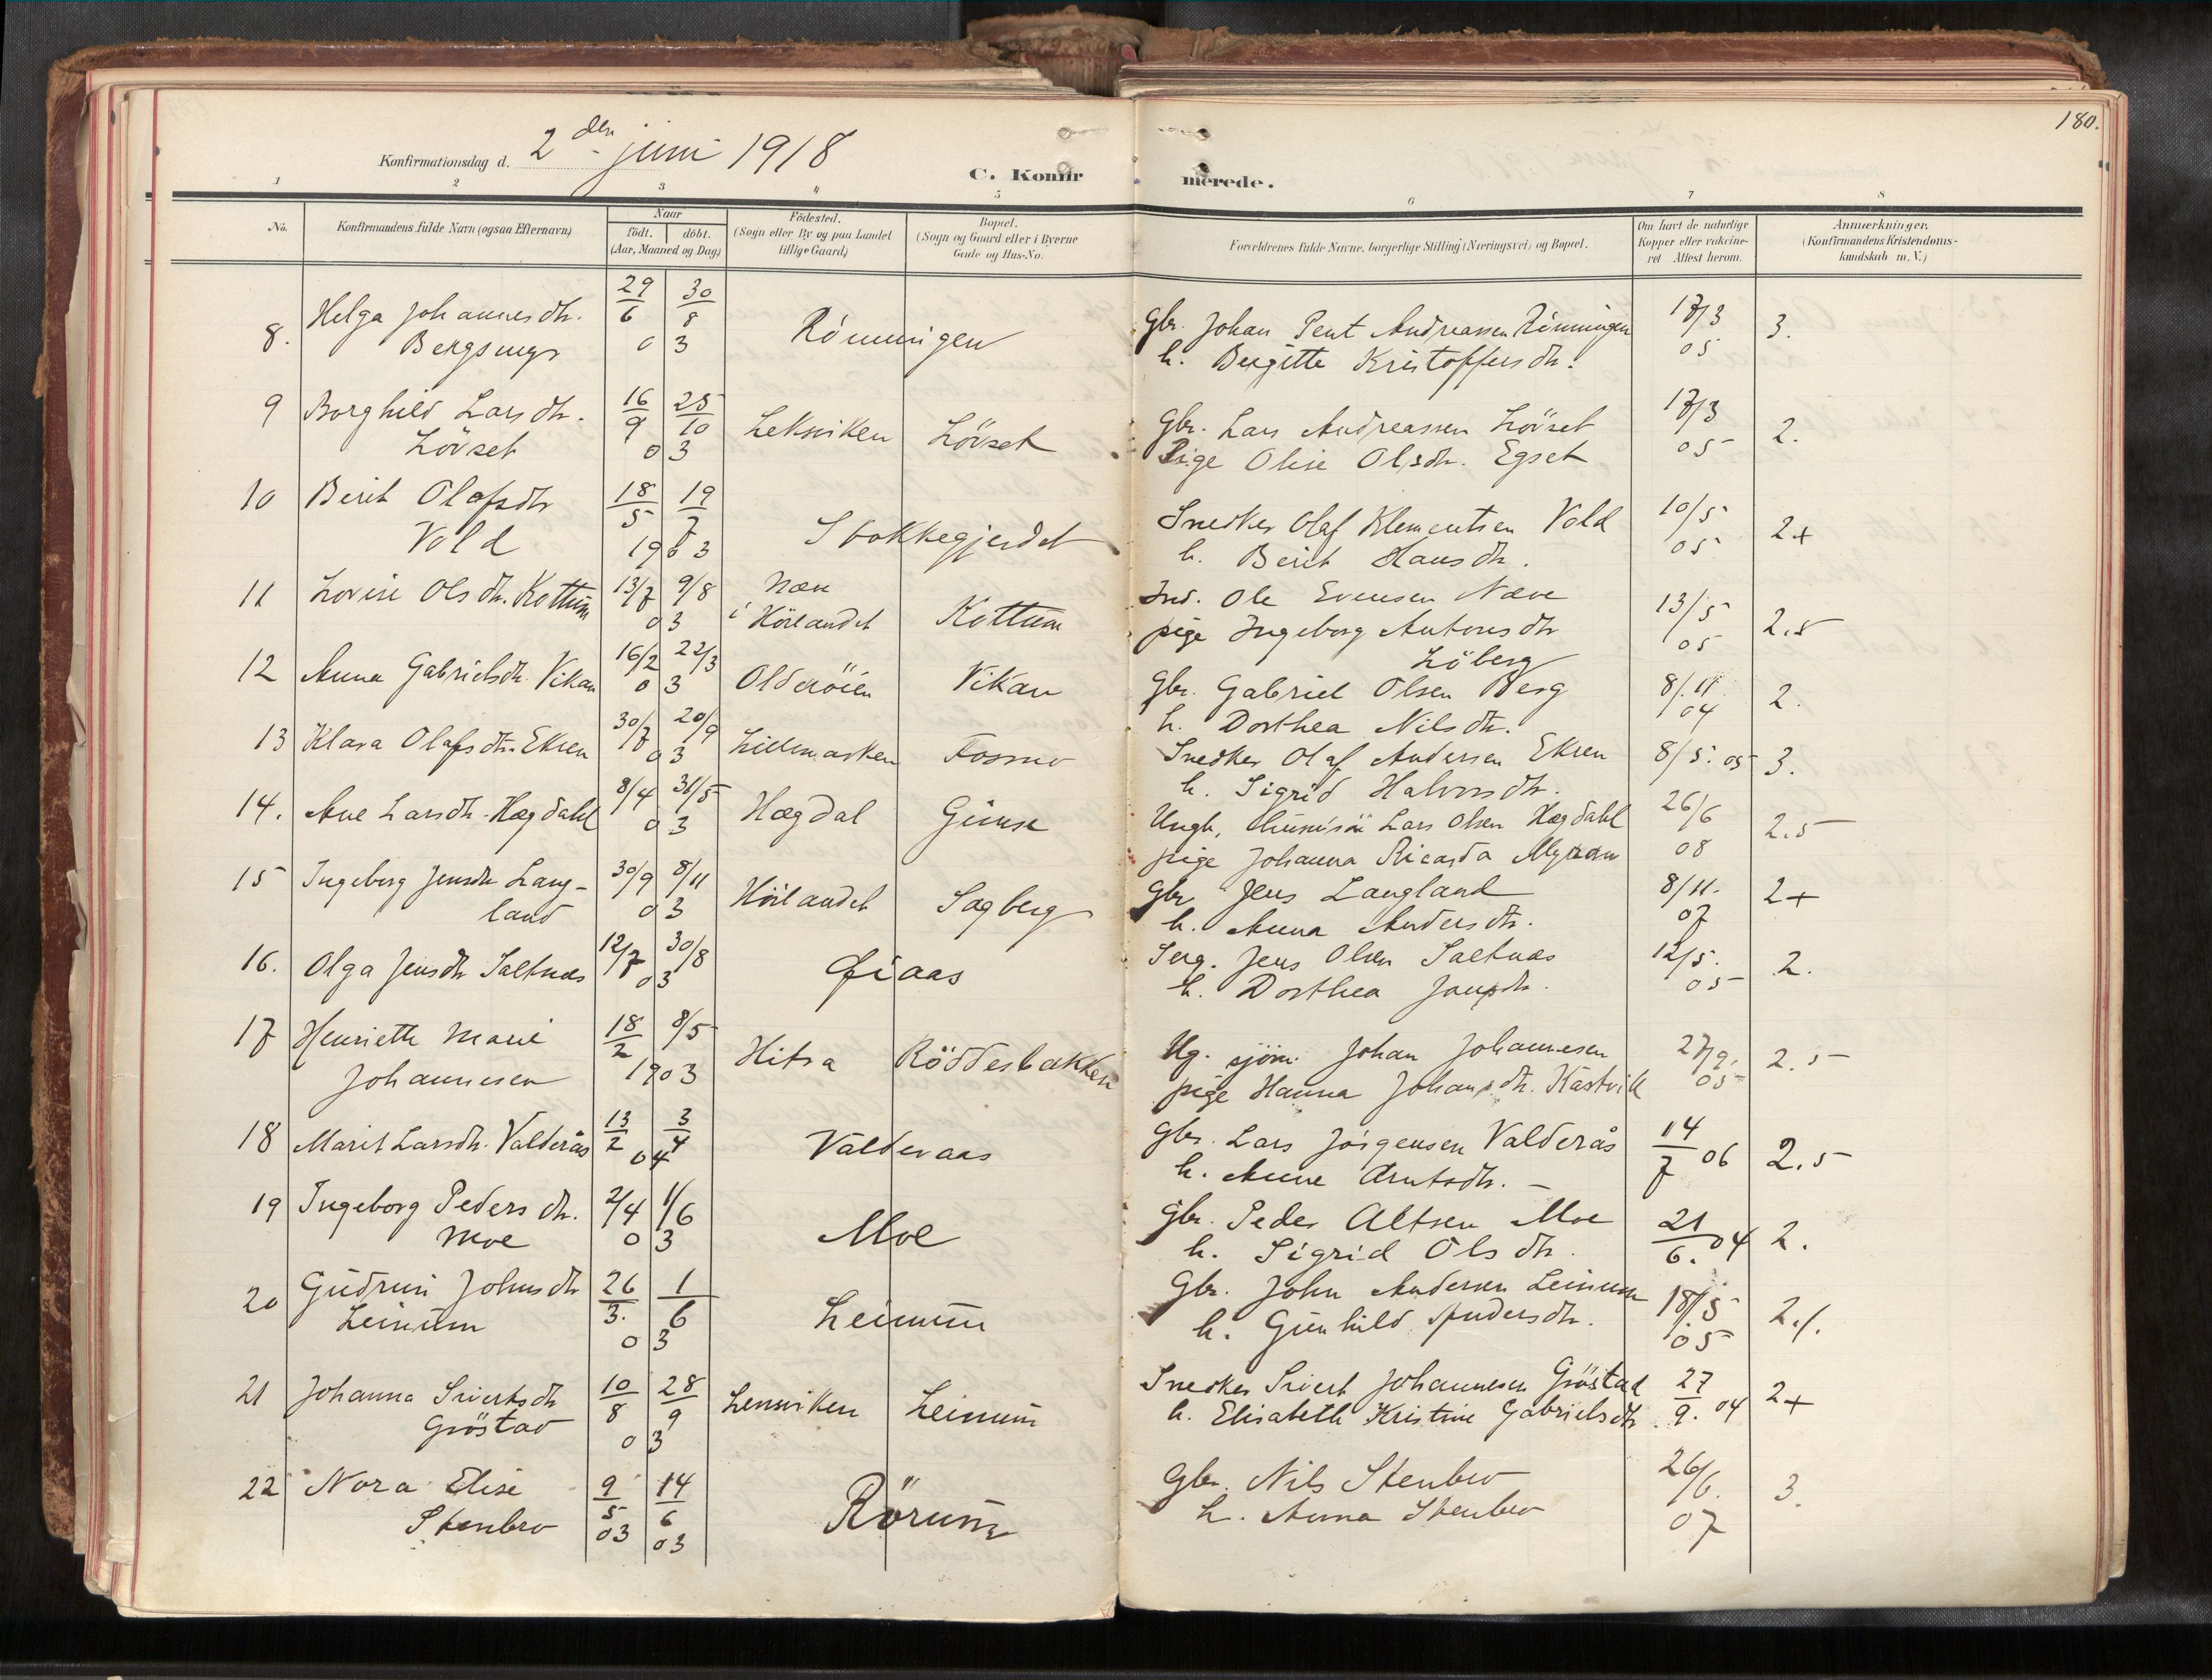 180.
Konfirmationsdag d. 2den juni 1918
C. Konfir merede.
1 2 3 4 5 6 7 8
No. Konfirmandens fulde Navn (ogsaa Efternavn) Naar födt. döbt. (Aar, Maaned og Dag) Födested. (Sogn eller By og paa Landet tillige Gaard) Bopæl. (Sogn og Gaard eller i Byerne Gade og Hus-No. Forældrenes fulde Navne, borgerlige Stilling (Næringsvei) og Bopæl. Om havt de naturlige Kopper eller vakcineret Attest herom. Anmærkninger. (Konfirmandens Kristendomskundskab m. V.)
8. Helga Johannesdtr. 29/6 30/8 Rönningen Gbr. Johan Pent Andreassen Rönningen 17/3 3.
03 h. Bergitte Kristoffersdtr. 05
9 Borghild Larsdtr. 16/9 25/10 Leksviken Lövset Gbr. Lars Andreassen Lövset 17/3 2.
Lövset 03 Pige Olise Olsdtr. Egset 05
10 Berit Olafsdtr 18/5 19/7 Stokkegjerdet Snedker Olaf Klementsen Vold 10/5 2+
Vold 1903 h. Berit Hansdtr. 05
11 Lovise Olsdtr. Kottüm 13/7 9/8 Næve Ind. Ole Evensen Næve 13/5 2.5
03 i Hölandet Kottüm pige Ingeborg Antonsdtr 05
Löberg
12 Anna Gabrielsdtr. Vikan 16/2 22/3 Olderöien Vikan Gbr. Gabriel Olsen Berg 8/11 2.
03 h. Dorthea Nilsdtr. 04
13 Klara Olafsdtr. Ekren 30/7 20/9 Lillemarken Fosmo Snedker Olaf Andersen Ekren 8/5. 05 3.
03 h. Sigrid Halvorsdtr.
14. Ane Larsdtr. Hægdahl 8/4 31/5 Hægdal Gimse Ungk. Lars Olsen Hægdahl 26/6 2.5
03 pige Johanna Ricarda 08
15 Ingeborg Jensdtr Lang- 30/9 8/11 Hölandet Sagberg Gbr Jens Langland 8/11. 2+
land 03 h. Anna Andersdtr. 07
16. Olga Jensdtr Saltnæs 12/7 30/8 Öiaas Serg. Jens Olsen Saltnæs 12/5. 2.
03 h. Dorthea 05
17 Henriette Marie 18/2 8/5 Hitra Röddesbakken Ug. sjöm. Johan Johannesen 27/9. 2.5
Johannesen 1903 pige Hanna Johansdtr. Kästvik 05
18 Marit Larsdtr. Valderås 13/2 3/4 Valderaas Gbr. Lars Jörgensen Valderås 14/7 06 2.5
04 h. Anne Arntsdtr. –
19 Ingeborg Pedersdtr. 2/4 1/6 Moe Gbr. Peder Altsen Moe 21/6. 04 2.
Moe 03 h. Sigrid Olsdtr.
20 Güdrun Johnsdtr 26/3. 1/6 Leinum Gbr. John Andersen Leinum 18/5 2./.
Leinüm 03 h. Günhild Andersdtr. 05
21 Johanna Sivertsdtr 10/8 28/9 Lenviken Leinum Snedker Sivert Johannesen Gröstad 27/9. 04 2+
Gröstad 03 h. Elisabeth Kristine Gabrielsdtr
22 Nora Elise 9/5 14/6 Rörum Gbr. Nils Stenbro 26/6. 3.
Stenbro 03 03 h. Anna Stenbro 07